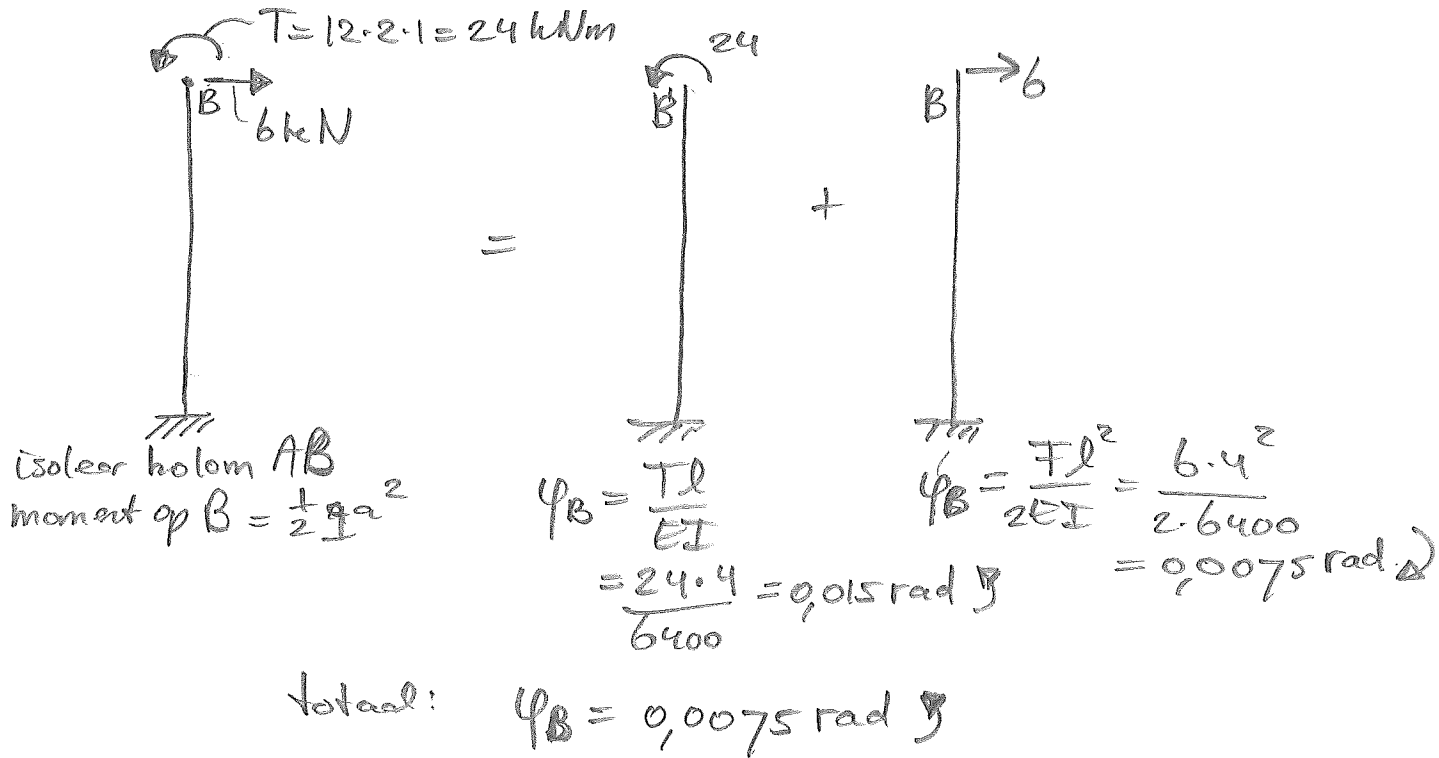 T = 12·2·1 = 24 kNm
B
6 kN
=
24
B
+
B
6
isoleer kolom AB
moment op B = ½qa²
φB = Tl/EI
= 24·4/6400 = 0,015 rad
φB = Fl²/2EI = 6·4²/2·6400
= 0,0075 rad
totaal: φB = 0,0075 rad